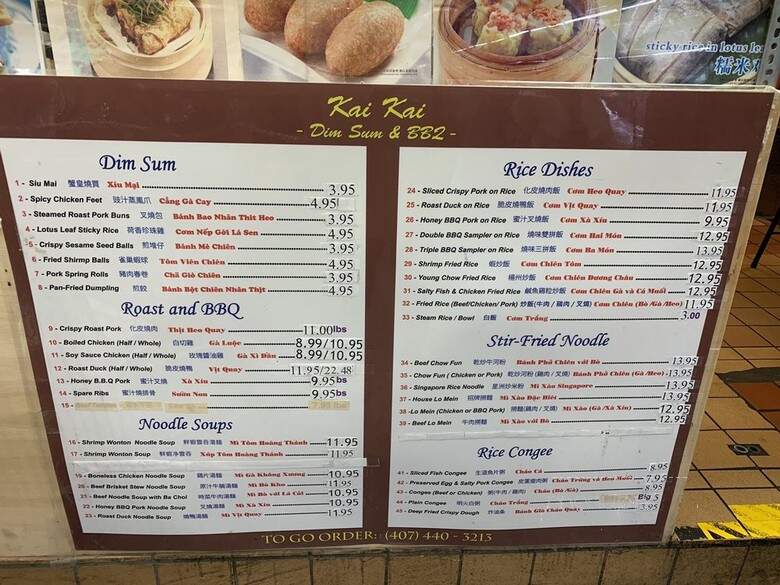 sticky rice in lotus le
糯米
Kai Kai
- Dim Sum & BBQ -
Dim Sum
1 - Siu Mai 蟹皇燒買 Xíu Mại 3.95
2 - Spicy Chicken Feet 豉汁蒸鳳爪 Cẳng Gà Cay 4.95
3 - Steamed Roast Pork Buns 叉燒包 Bánh Bao Nhân Thit Heo 3.95
4 - Lotus Leaf Sticky Rice 荷香珍珠雞 Cơm Nếp Gói Lá Sen 4.95
5 - Crispy Sesame Seed Balls 煎堆仔 Bánh Mè Chiên 3.95
6 - Fried Shirmp Balls 雀巢蝦球 Tôm Viên Chiên 4.95
7 - Pork Spring Rolls 豬肉春卷 Chã Giò Chiên 3.95
8 - Pan-Fried Dumpling 煎餃 Bánh Bột Chiên Nhân Thịt 4.95
Roast and BBQ
9 - Crispy Roast Pork 化皮燒肉 Thịt Heo Quay 11.00lbs
10 - Boiled Chicken (Half / Whole) 白切雞 Gà Luộc 8.99/10.95
11 - Soy Sauce Chicken (Half / Whole) 玫瑰醬油雞 Gà Xì Dầu 8.99/10.95
12 - Roast Duck (Half / Whole) 脆皮燒鴨 Vịt Quay 11.95/22.48
13 - Honey B.B.Q Pork 蜜汁叉燒 Xà Xíu 9.95bs
14 - Spare Ribs 蜜汁燒排骨 Sườn Non 9.95bs
Noodle Soups
16 - Shrimp Wonton Noodle Soup 鮮蝦雲吞湯麵 Mì Tôm Hoàng Thánh 11.95
17 - Shrimp Wonton Soup 鮮蝦净雲吞 Xúp Tôm Hoàng Thánh 11.95
19 - Boneless Chicken Noodle Soup 鷄片湯麵 Mì Gà Không Xương 10.95
20 - Beef Brisket Stew Noodle Soup 原汁牛腩湯麵 Mì Bò Kho 11.95
21 - Beef Noodle Soup with Ba Choi 時菜牛肉湯麵 Mì Bò với Lá Cải 10.95
22 - Honey BBQ Pork Noodle Soup 叉燒湯麵 Mì Xà Xíu 10.95
23 - Roast Duck Noodle Soup 燒鴨湯麵 Mì Vịt Quay 11.95
Rice Dishes
24 - Sliced Crispy Pork on Rice 化皮燒肉飯 Cơm Heo Quay 11.95
25 - Roast Duck on Rice 脆皮燒鴨飯 Cơm Vịt Quay 11.95
26 - Honey BBQ Pork on Rice 蜜汁叉燒飯 Cơm Xà Xíu 9.95
27 - Double BBQ Sampler on Rice 燒味雙拼飯 Cơm Hai Món 12.95
28 - Triple BBQ Sampler on Rice 燒味三拼飯 Cơm Ba Món 13.95
29 - Shrimp Fried Rice 蝦炒飯 Cơm Chiên Tôm 12.95
30 - Young Chow Fried Rice 楊州炒飯 Cơm Chiên Dương Châu 12.95
31 - Salty Fish & Chicken Fried Rice 鹹魚雞粒炒飯 Cơm Chiên Gà và Cá Muối 12.95
32 - Fried Rice (Beef/Chicken/ Pork) 炒飯(牛肉 / 鷄肉 / 叉燒) Cơm Chiên (Bò/Gà/Heo) 11.95
33 - Steam Rice / Bowl 白飯 Cơm Trắng 3.00
Stir-Fried Noodle
34 - Beef Chow Fun 乾炒牛河粉 Bánh Phở Chiên với Bò 13.95
35 - Chow Fun (Chicken or Pork) 乾炒河粉 (鷄肉 / 叉燒) Bánh Phở Chiên (Gà /Heo) 13.95
36 - Singapore Rice Noodle 星洲炒米粉 Mì Xào Singapore 13.95
37 - House Lo Mein 招牌撈麵 Mì Xào Đặc Biêt 13.95
38 - Lo Mein (Chicken or BBQ Pork) 撈麵(鷄肉 / 叉燒) Mì Xào (Gà/Xà Xíu) 12.95
39 - Beef Lo Mein 牛肉撈麵 Mì Xào với Bò 12.95
Rice Congee
41 - Sliced Fish Congee 生滾魚片粥 Cháo Cá 8.95
42 - Preserved Egg & Salty Pork Congee 皮蛋瘦肉粥 Cháo Trứng và Heo Muối 7.95
43 - Congee (Beef or Chicken) 粥(牛肉 / 鷄肉) Cháo (Bò /Gà) 8.95
44 - Plain Congee 明火白粥 Cháo Trắng
45 - Deep Fried Crispy Dough 炸油條 Bánh Giò Cháo Quảy 3.95
TO GO ORDER: (407) 440 - 3213